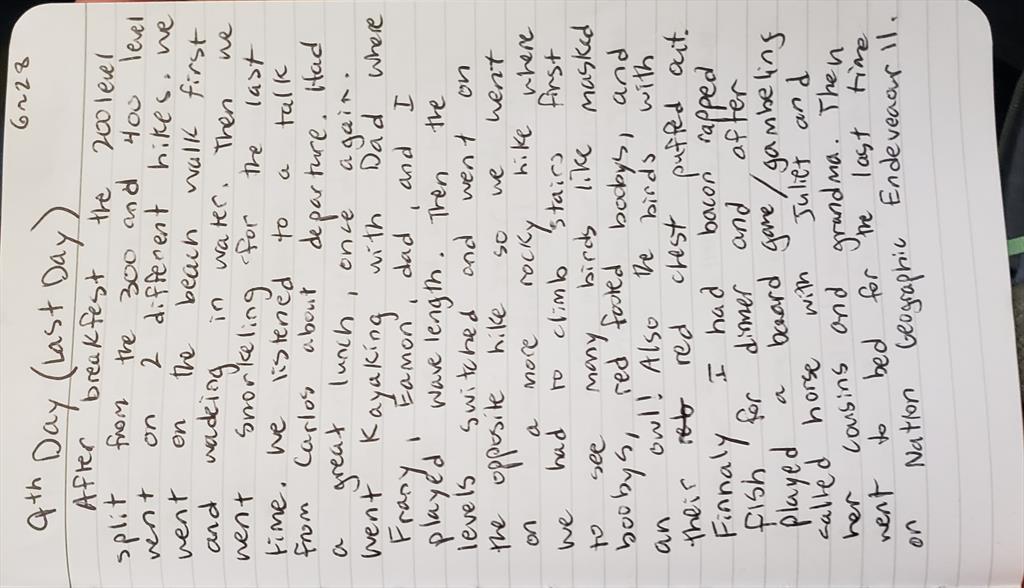 9th Day (Last Day) 6/28
After breakfest the 200 level
split from the 300 and 400 level
went on 2 different hikes. We
went on the beach walk first
and wadeing in water. Then we
went snorkeling for the last
time. We listened to a talk
from Carlos about departure. Had
a great lunch, once again.
Went Kayaking with Dad where
Frany, Eamon, dad, and I
played, wavelength. Then the
levels switched and went on
the opposite hike so we went
on a more rocky hike where
we had to climb stairs first
to see many birds like masked
boobys, red footed boobys, and
an owl! Also the birds with
their red chest puffed out.
Finnaly I had bacon rapped
fish for dinner and after
played a board game/gambeling
called horse with Juliet and
her cousins and grandma. Then
went to bed for the last time
on Nation Geographic Endeveaur II.